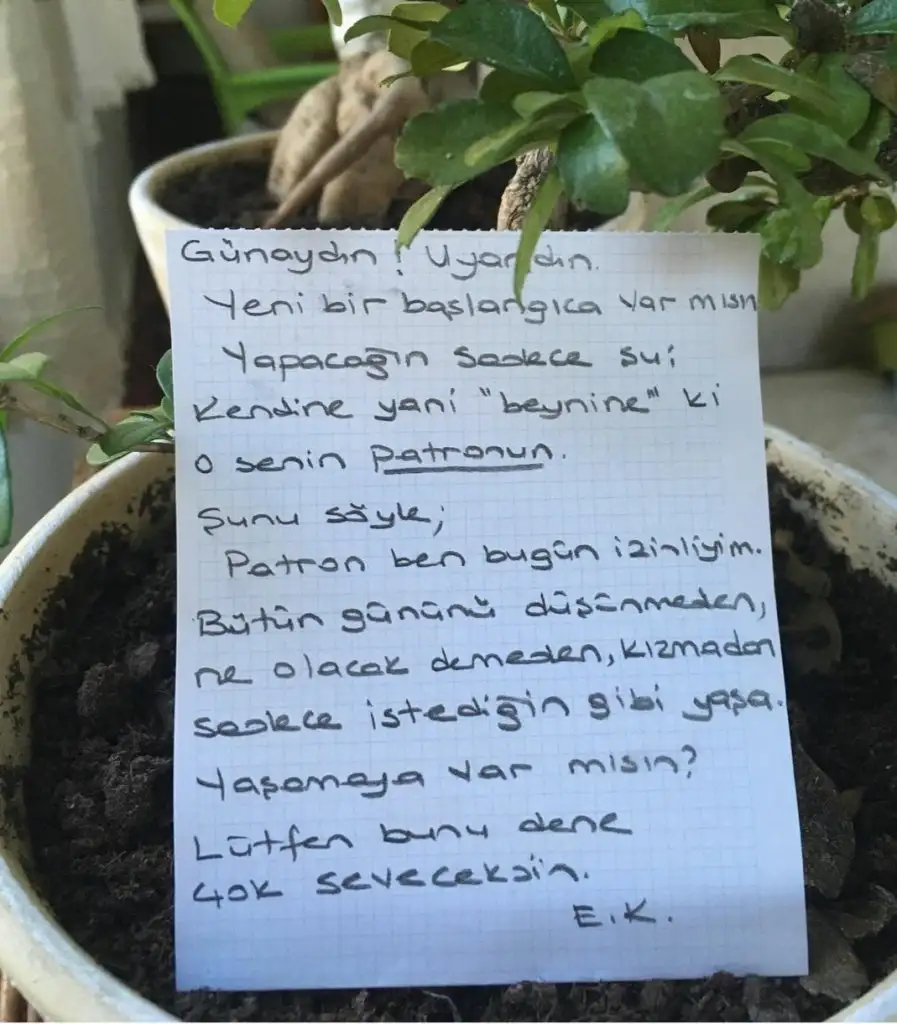 Günaydın! Uyandın.
Yeni bir başlangıca var mısın
Yapacağın sadece şu;
Kendine yani "beynine" ki
o senin patronun.
Şunu söyle;
Patron ben bugün izinliyim.
Bütün gününü düşünmeden,
ne olacak demeden, kızmadan
sadece istediğin gibi yaşa.
Yaşamaya var mısın?
Lütfen bunu dene
çok seveceksin.
E.K.